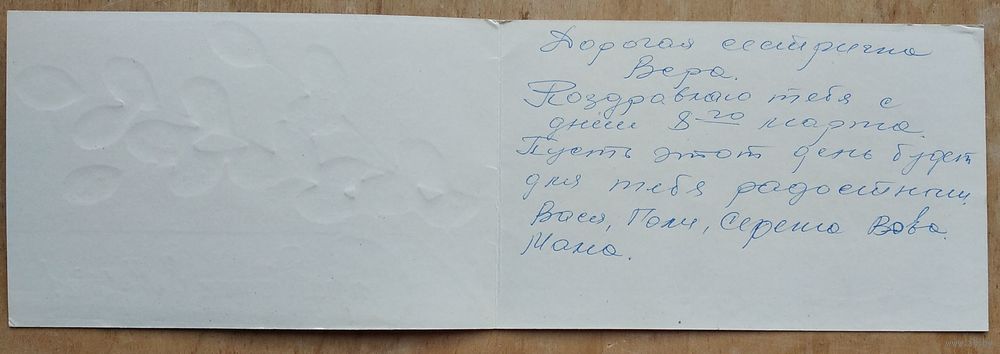 Дорогая сестричка
Вера.
Поздравляю тебя с
днём 8го марта.
Пусть этот день будет
для тебя радостным.
Вася, Поля, Сережа Вова.
Мама.